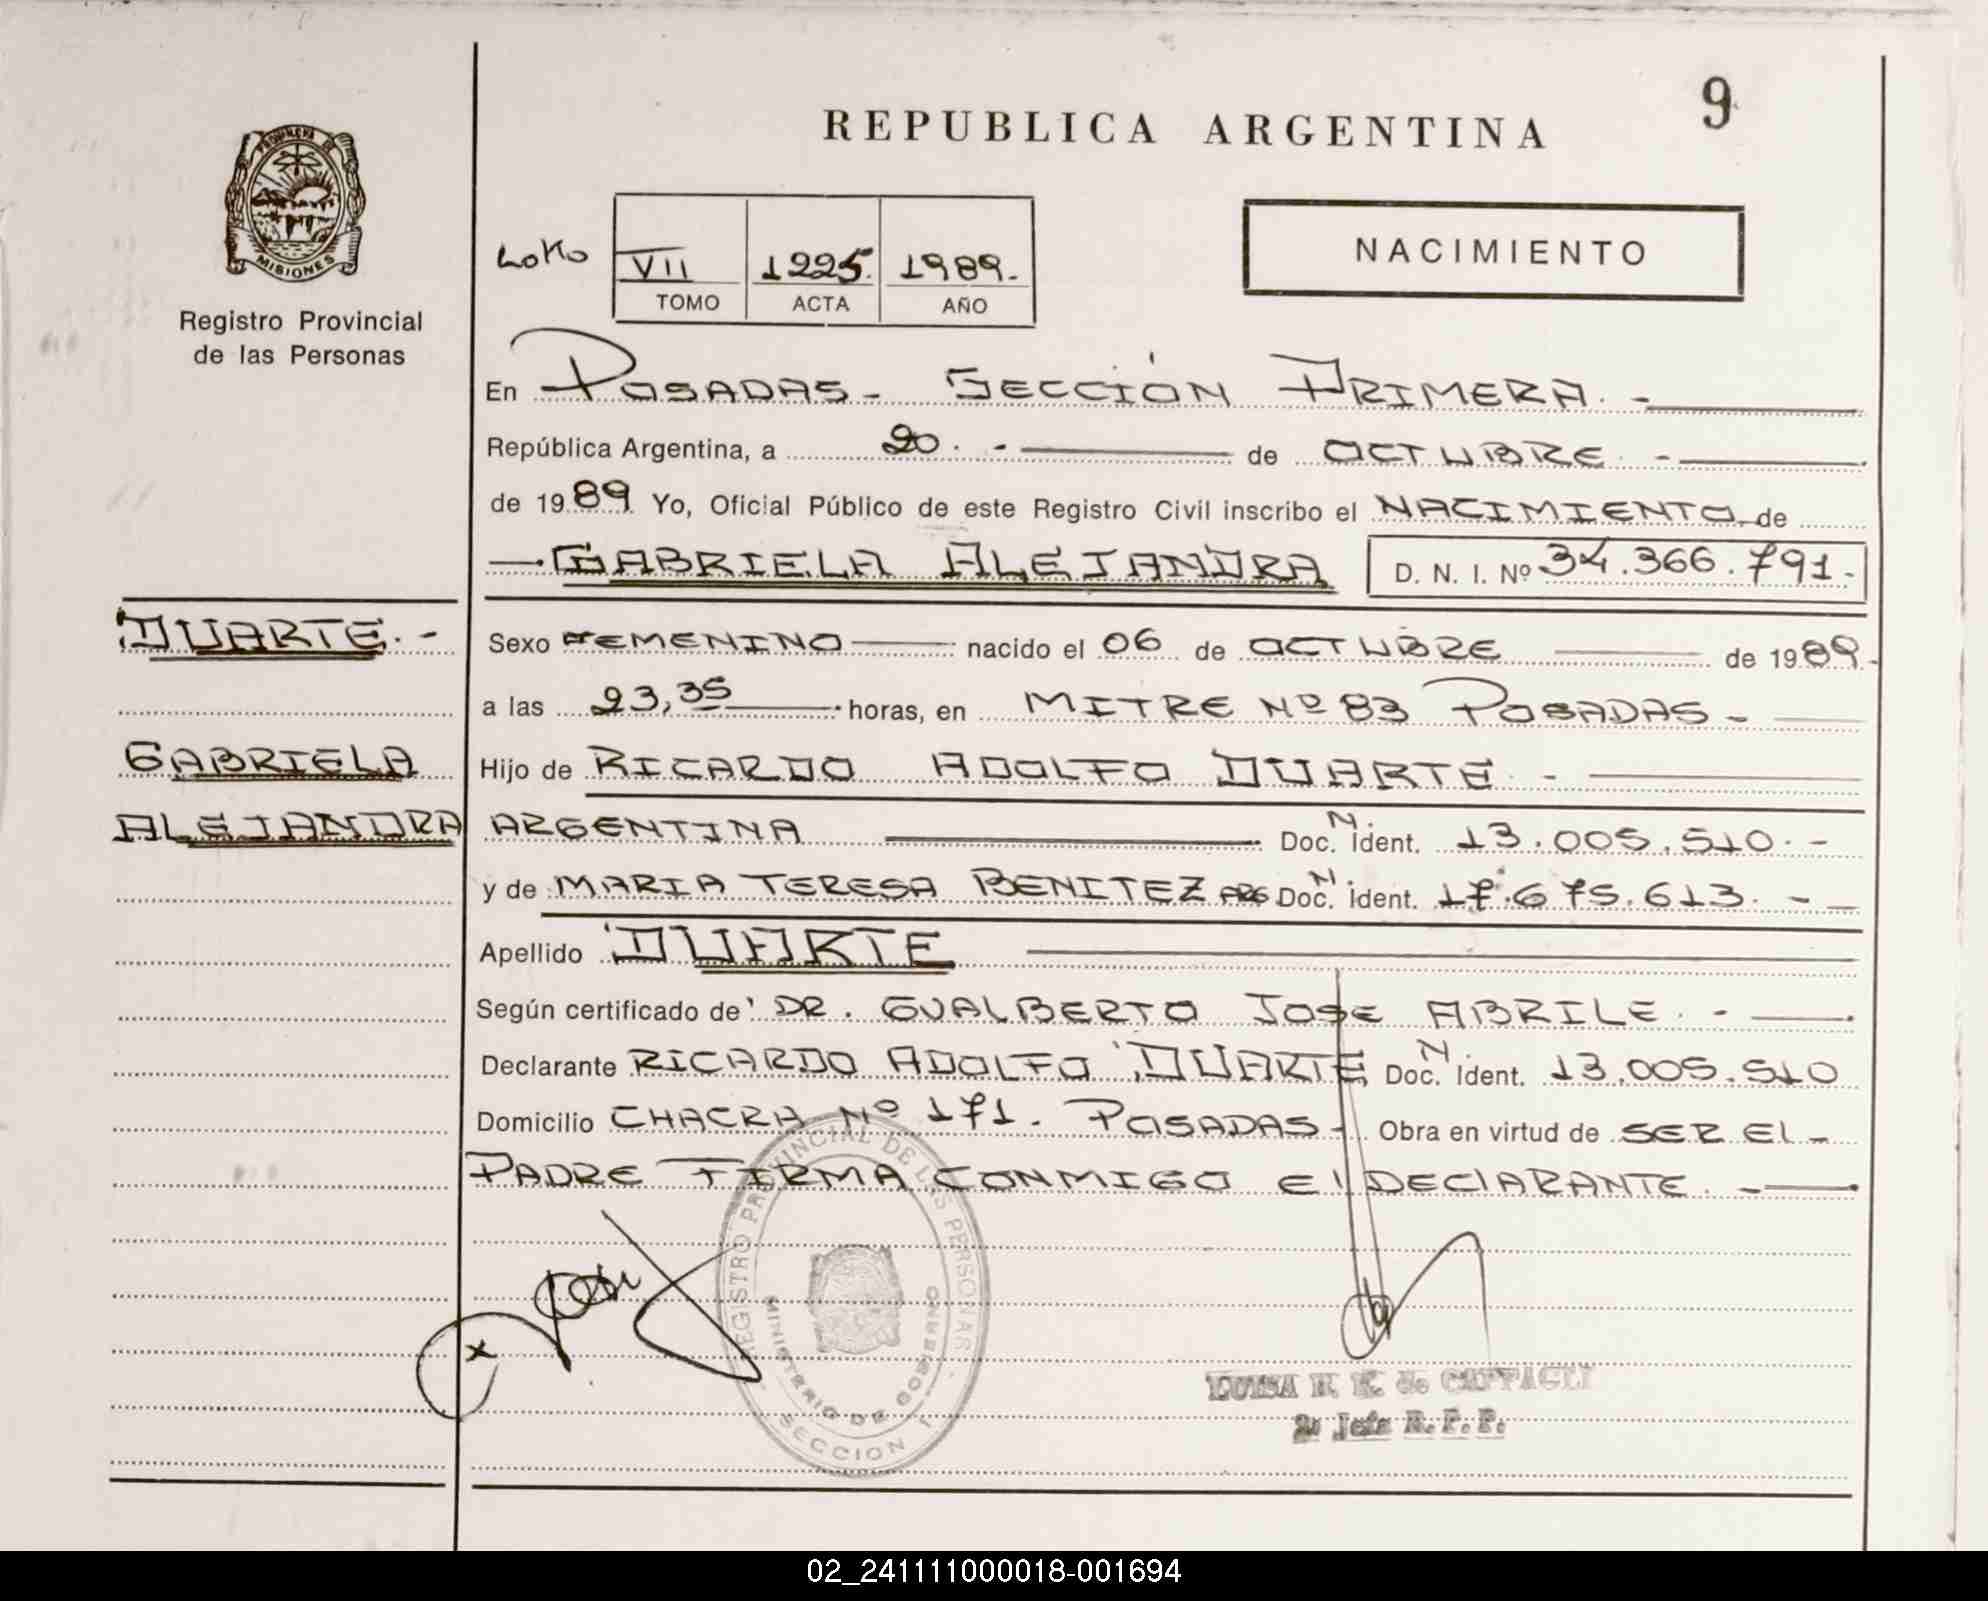 9
REPUBLICA ARGENTINA
PROVINCIA DE
MISIONES
Registro Provincial
de las Personas
NACIMIENTO
VII 1225. 1989.-
TOMO ACTA AÑO
En POSADAS - SECCIÓN PRIMERA. -
República Argentina, a 20. - de OCTUBRE. -
de 1989. Yo, Oficial Público de este Registro Civil inscribo el NACIMIENTO de
- GABRIELA ALEJANDRA D. N. I. Nº 34.366.791.-
DUARTE. -
GABRIELA
ALEJANDRA
Sexo FEMENINO nacido el 06 de OCTUBRE de 1989.-
a las 23,35 horas, en MITRE Nº 83 POSADAS -
Hijo de RICARDO ADOLFO DUARTE. -
ARGENTINA Doc. N. ident. 13.005.510. -
y de MARIA TERESA BENITEZ ARG Doc. N. ident. 17.675.613. - -
Apellido DUARTE
Según certificado de DR. GUALBERTO JOSE ABRILE. -
Declarante RICARDO ADOLFO DUARTE Doc. N. Ident. 13.005.510
Domicilio CHACRA Nº 171. POSADAS - Obra en virtud de SER EL -
PADRE FIRMA CONMIGO El DEClARANTE. -
REGISTRO PROVINCIAL DE LAS PERSONAS
MINISTERIO DE GOBIERNO
SECCION 1
x
LUISA
2º Jefe R. P. P.
02_241111000018-001694